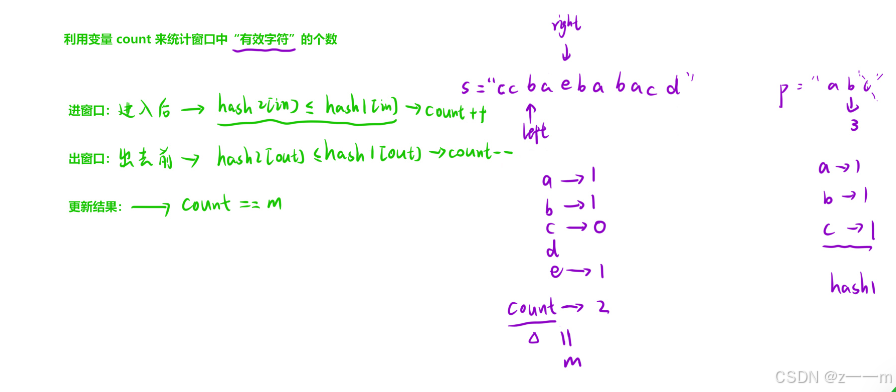 利用变量 count 来统计窗口中“有效字符”的个数
进窗口：进入后 → hash2[in] ≤ hash1[in] → count++
出窗口：出去前 → hash2[out] ≤ hash1[out] → count--
更新结果： → count == m
right
↓
s="ccbaebabacd"
↑
left
a → 1
b → 1
c → 0
d
e → 1
count → 2
=
m
p="abc"
↓
3
a → 1
b → 1
c → 1
hash1
CSDN @z一一m